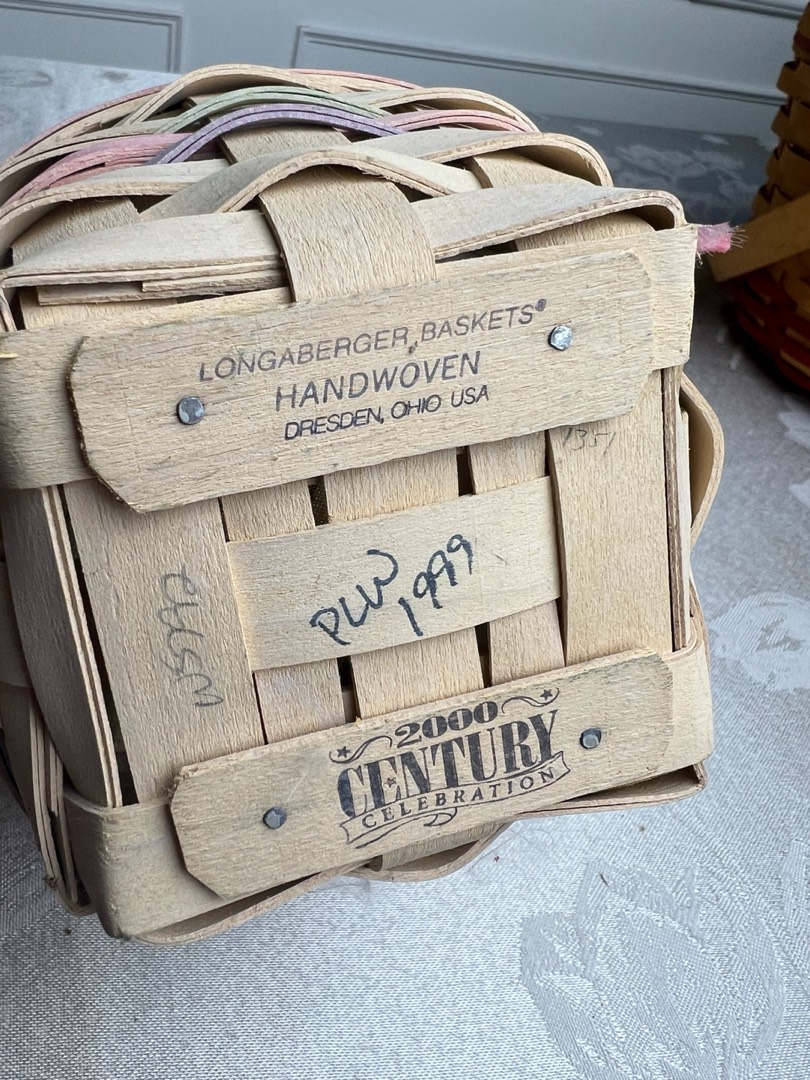 LONGABERGER BASKETS®
HANDWOVEN
DRESDEN, OHIO USA
1351
PLW
1999
2000
CENTURY
CELEBRATION